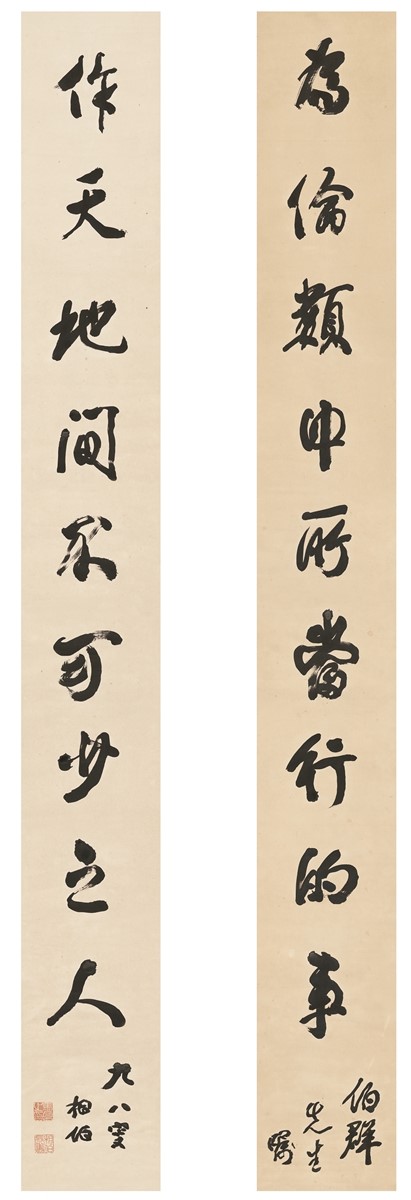 為倫類中所當行的事
伯群
先生
囑
作天地間不可少之人
九八叟
相伯